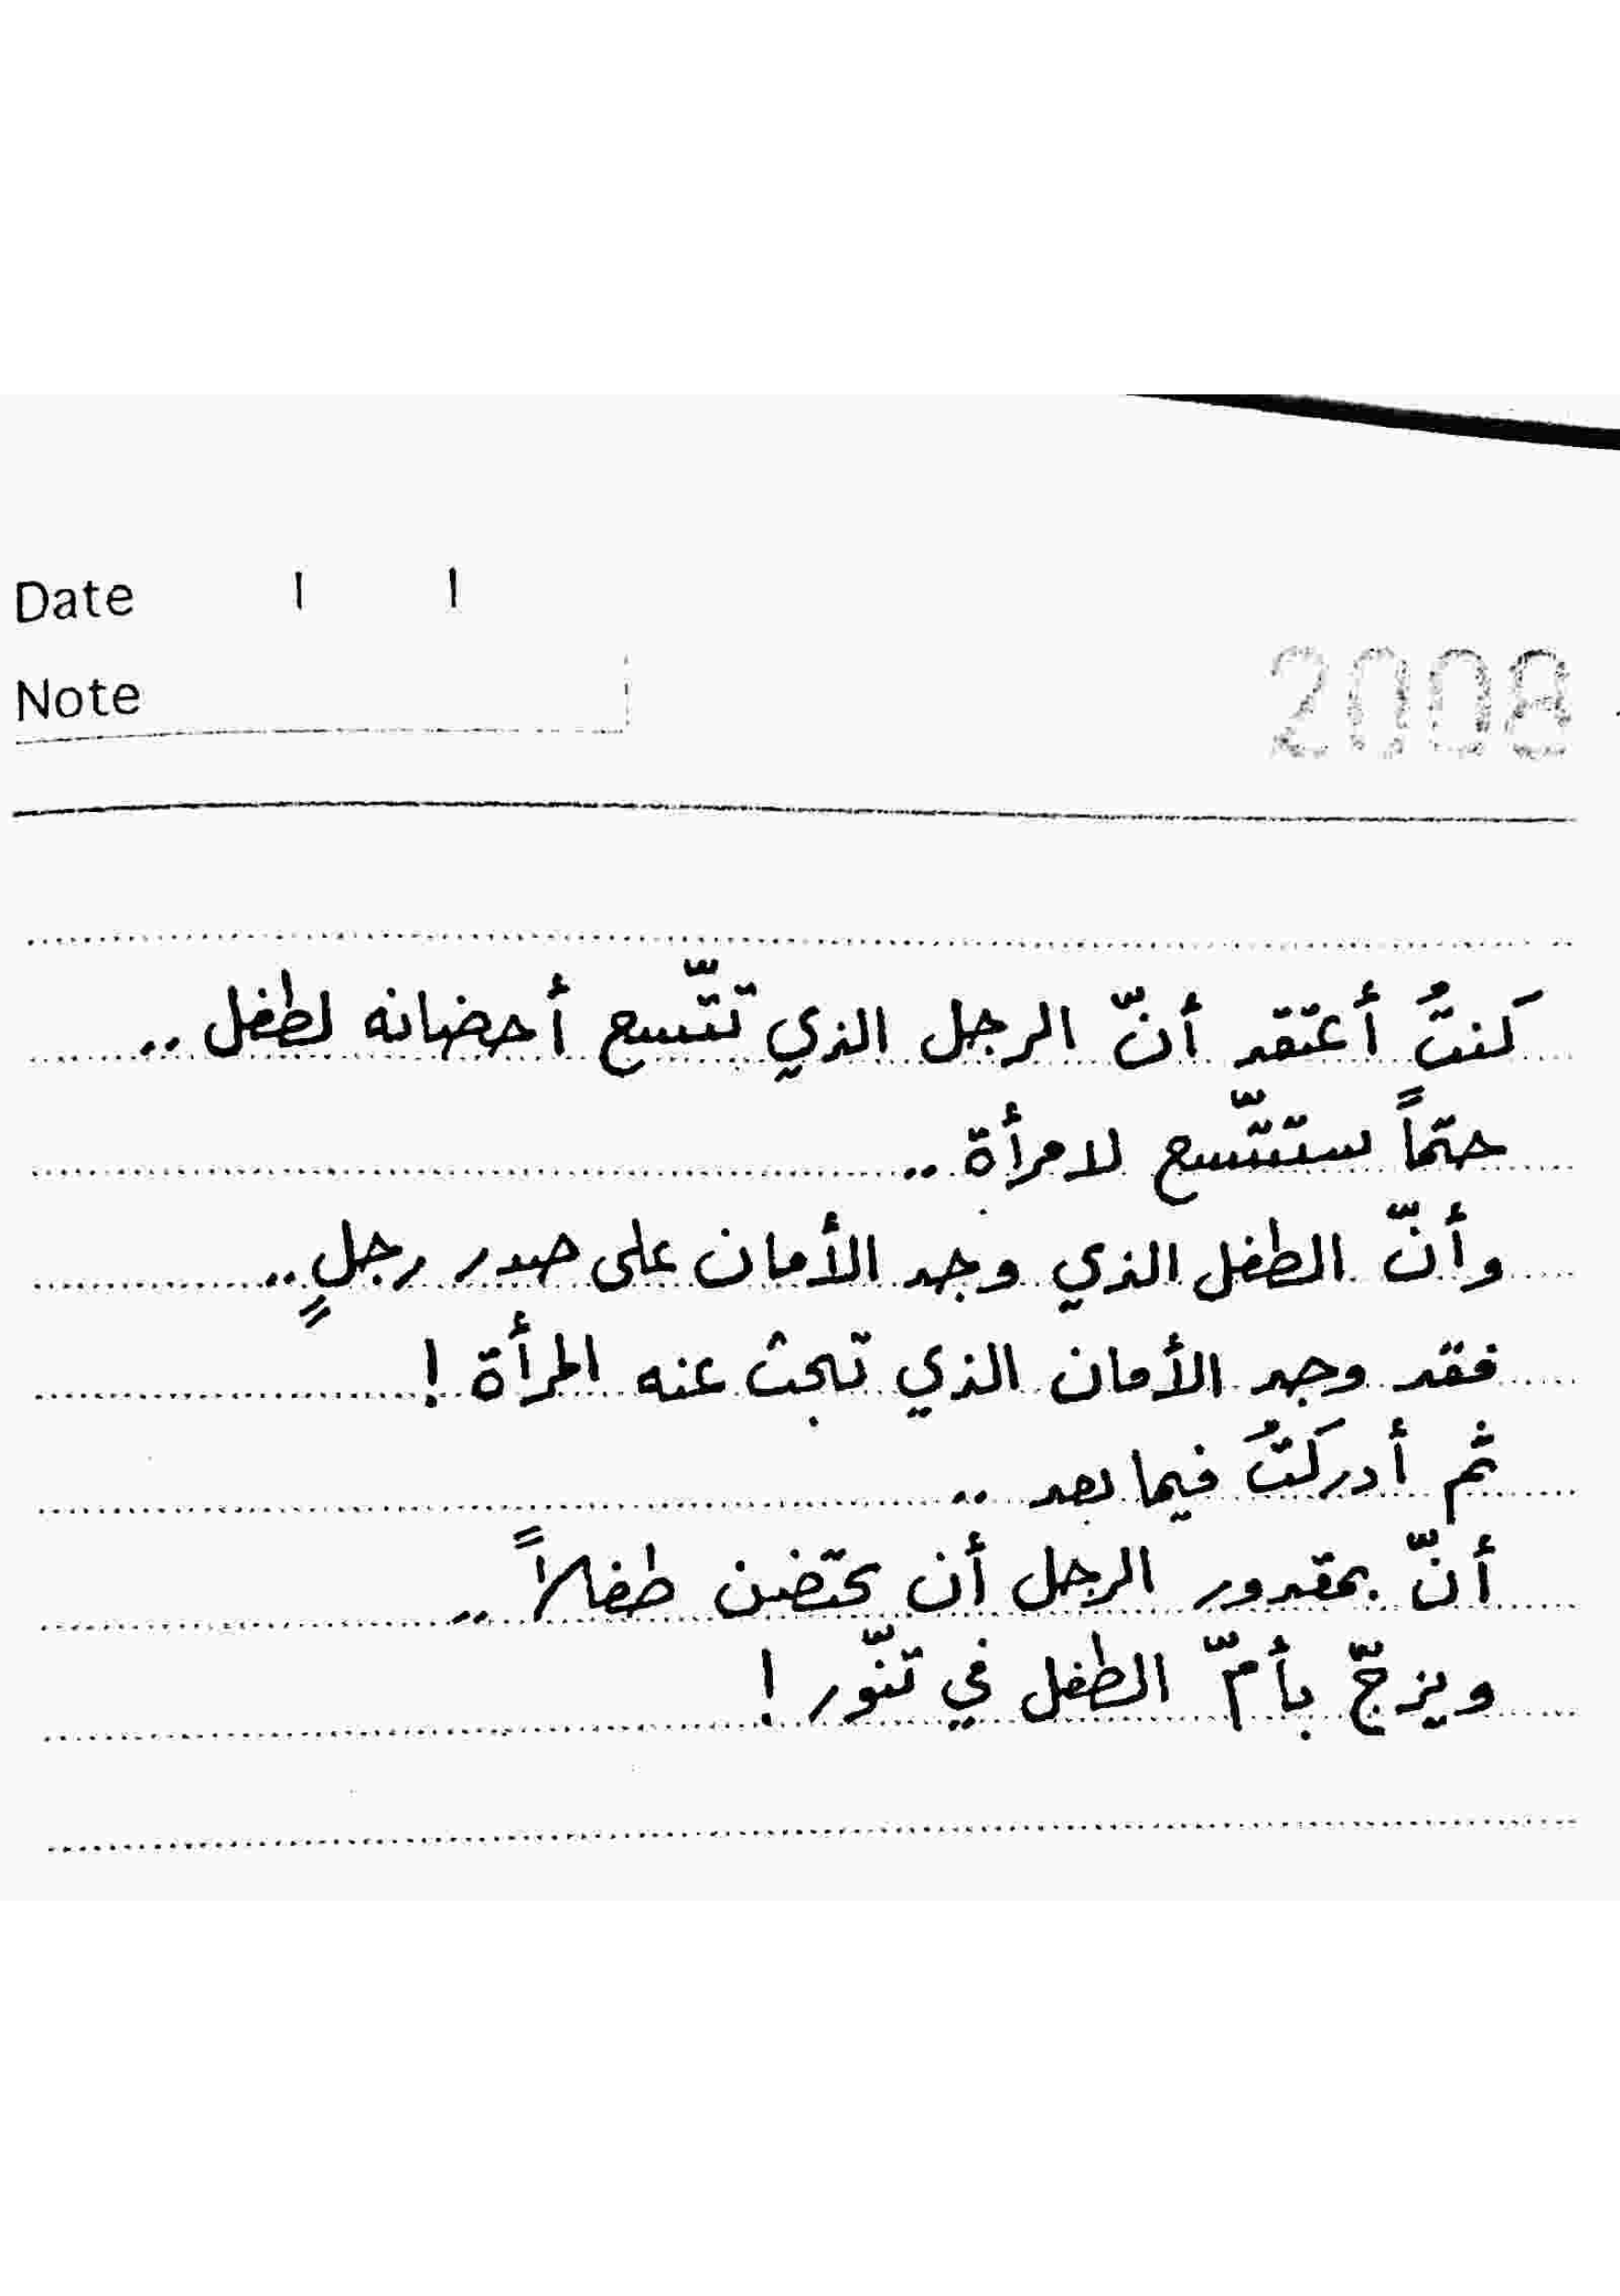 Date / /
Note
2008
كنتُ أعتقد أنّ الرجل الذي تتّسع أحضانه لطفل ..
حتماً ستتّسع لامرأة ..
وأنّ الطفل الذي وجد الأمان على صدر رجلٍ ..
فقد وجد الأمان الذي تبحث عنه المرأة !
ثم أدركتُ فيما بعد ..
أنّ بمقدور الرجل أن يحتضن طفلاً ..
ويزجّ بأمّ الطفل في تنّور !